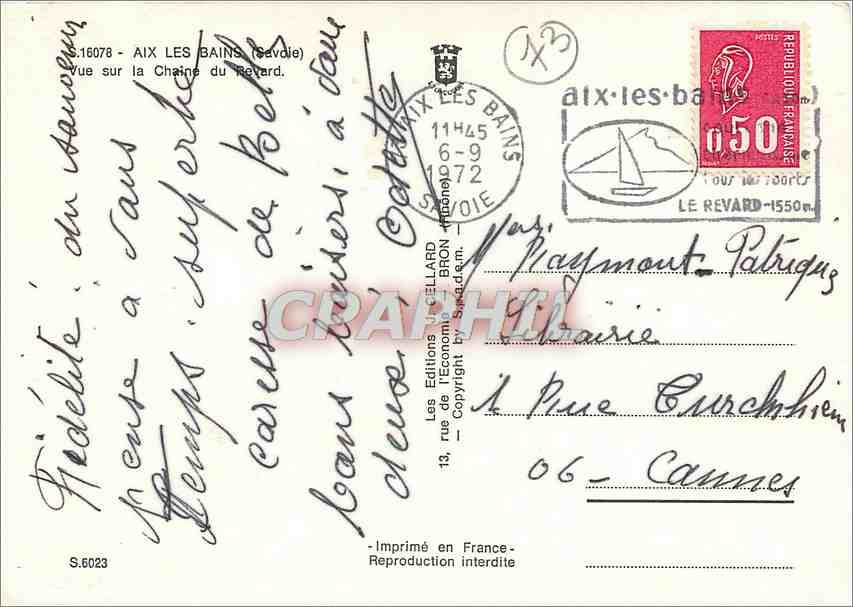 S.16078 - AIX LES BAINS (Savoie)
Vue sur la Chaîne du Revard.
73
AIX LES BAINS
11H45
6-9
1972
SAVOIE
aix-les-bains
tous les sports
LE REVARD-1550m
POSTES
REPUBLIQUE FRANÇAISE
0,50
Fidélité. du
pense a vous
temps. superbe
caresse de
bons baisers, à vous
deux,
Odette
Les Editions J. CELLARD
13, rue de l'Economie - BRON (Rhône)
— Copyright by S.p.a.d.e.m. —
CPARHIL
Raymont Patrique
Librairie
Rue
06 - Cannes
S.6023
-Imprimé en France-
Reproduction interdite